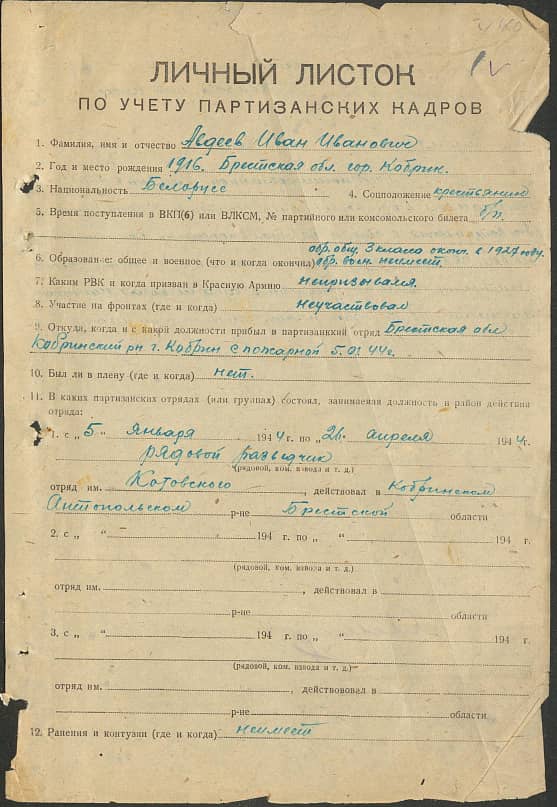 ЛИЧНЫЙ ЛИСТОК
ПО УЧЕТУ ПАРТИЗАНСКИХ КАДРОВ
1. Фамилия, имя и отчество Авдеев Иван Иванович
2. Год и место рождения 1916. Брестская обл. гор. Кобрин.
3. Национальность Белорусс 4. Соцположение крестьянин
5. Время поступления в ВКП(б) или ВЛКСМ, № партийного или комсомольского билета б/п.
обр. общ. 3 класса оконч. в 1927 году.
6. Образование: общее и военное (что и когда окончил) обр. воен. неимеет.
7. Каким РВК и когда призван в Красную Армию непризывался.
8. Участие на фронтах (где и когда) неучаствовал
9. Откуда, когда и с какой должности прибыл в партизанский отряд Брестская обл
Кобринский рн г. Кобрин с пожарной 5. 44г.
10. Был ли в плену (где и когда) нет.
11. В каких партизанских отрядах (или группах) состоял, занимаемая должность и район действия
отряда:
1. с „ 5 " Января 1944 г. по „ 2 " апреля 1944 г.
рядовой разведчик
(рядовой, ком. взвода и т. д.)
отряд им. Котовского, действовал в Кобринском
Антопольском р-не Брестской области
2. с „ " 194 г. по „ " 194 г.
(рядовой, ком. взвода и т. д.)
отряд им. , действовал в
р-не области
3. с „ " 194 г. по „ " 194 г.
(рядовой, ком. взвода и т. д.)
отряд им. , действовал в
р-не области
12. Ранения и контузии (где и когда) неимеет